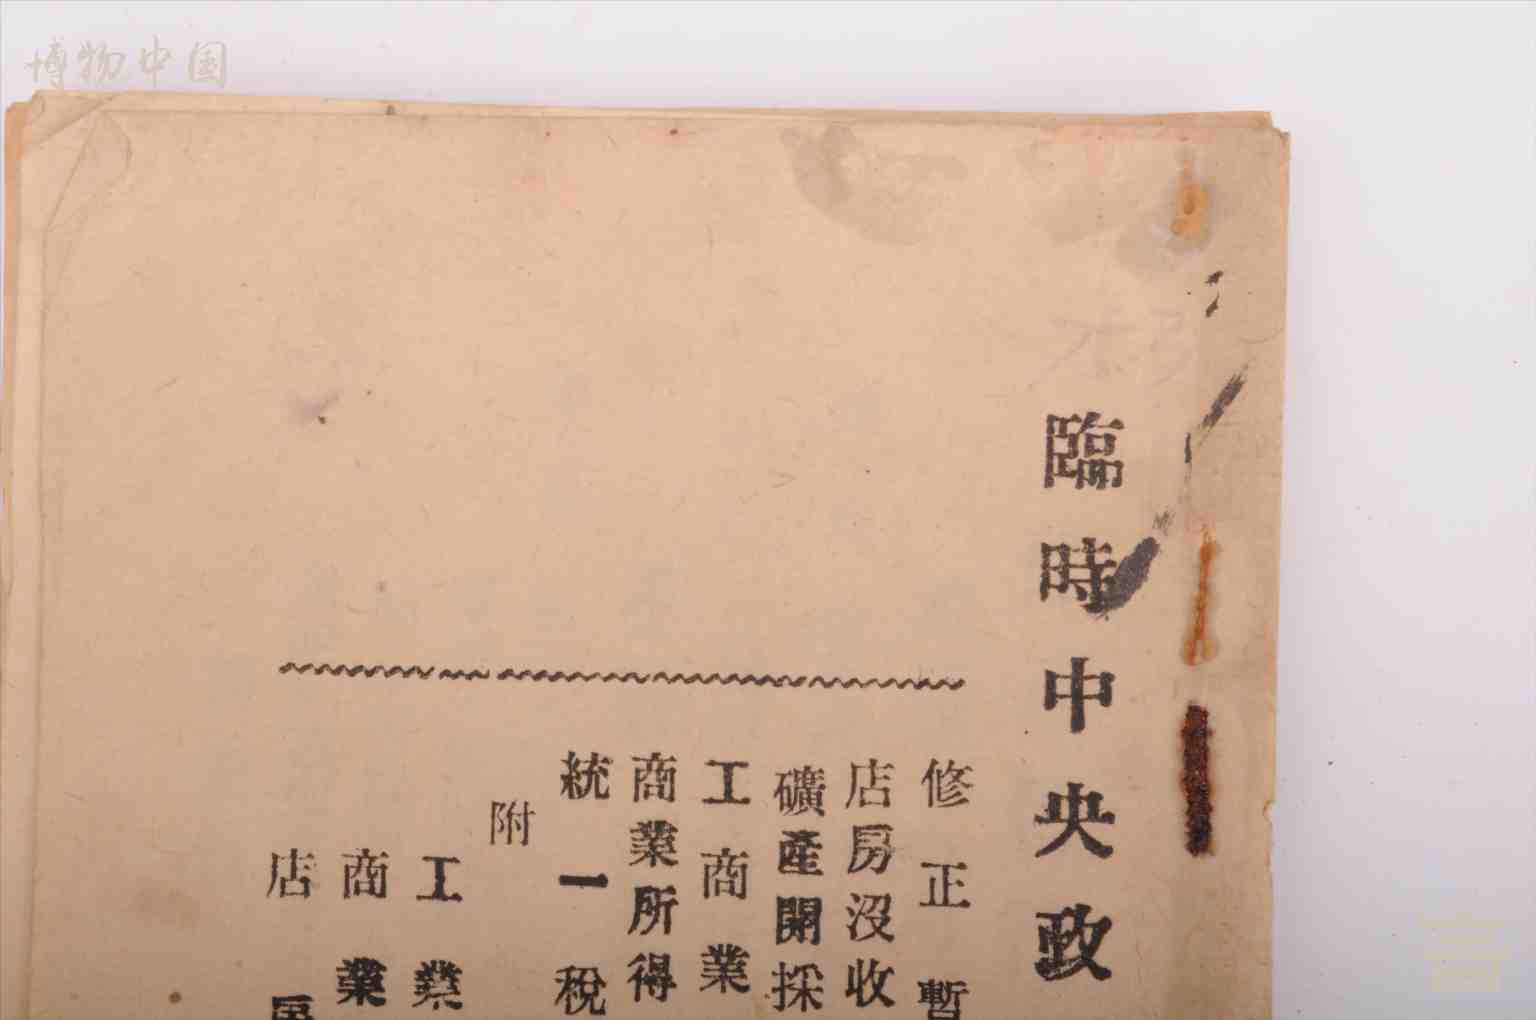 博物中国
臨時中央政
修正暫
店房没收
礦產開採
工商業
商業所得
統一稅
附
工業
商業
店房